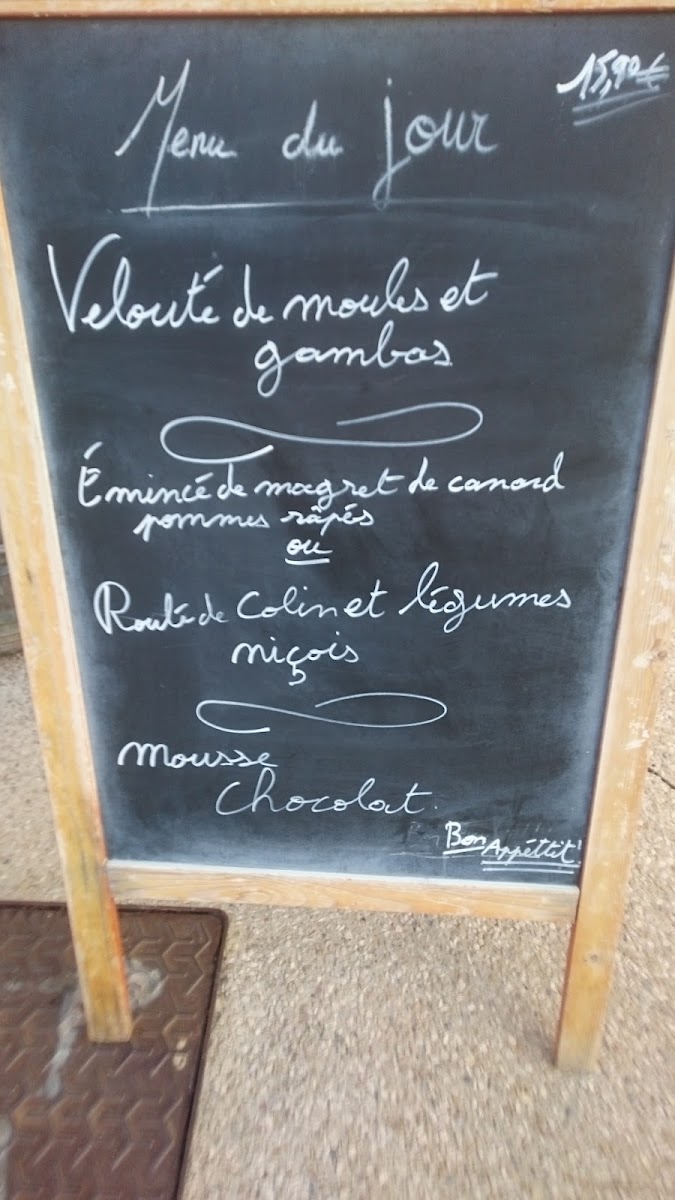 15,90€
Menu du jour
Velouté de moules et
gambas
Émincé de magret de canard
pommes râpés
ou
Routé de Colin et légumes
niçois
Mousse
Chocolat.
Bon Appéttit!